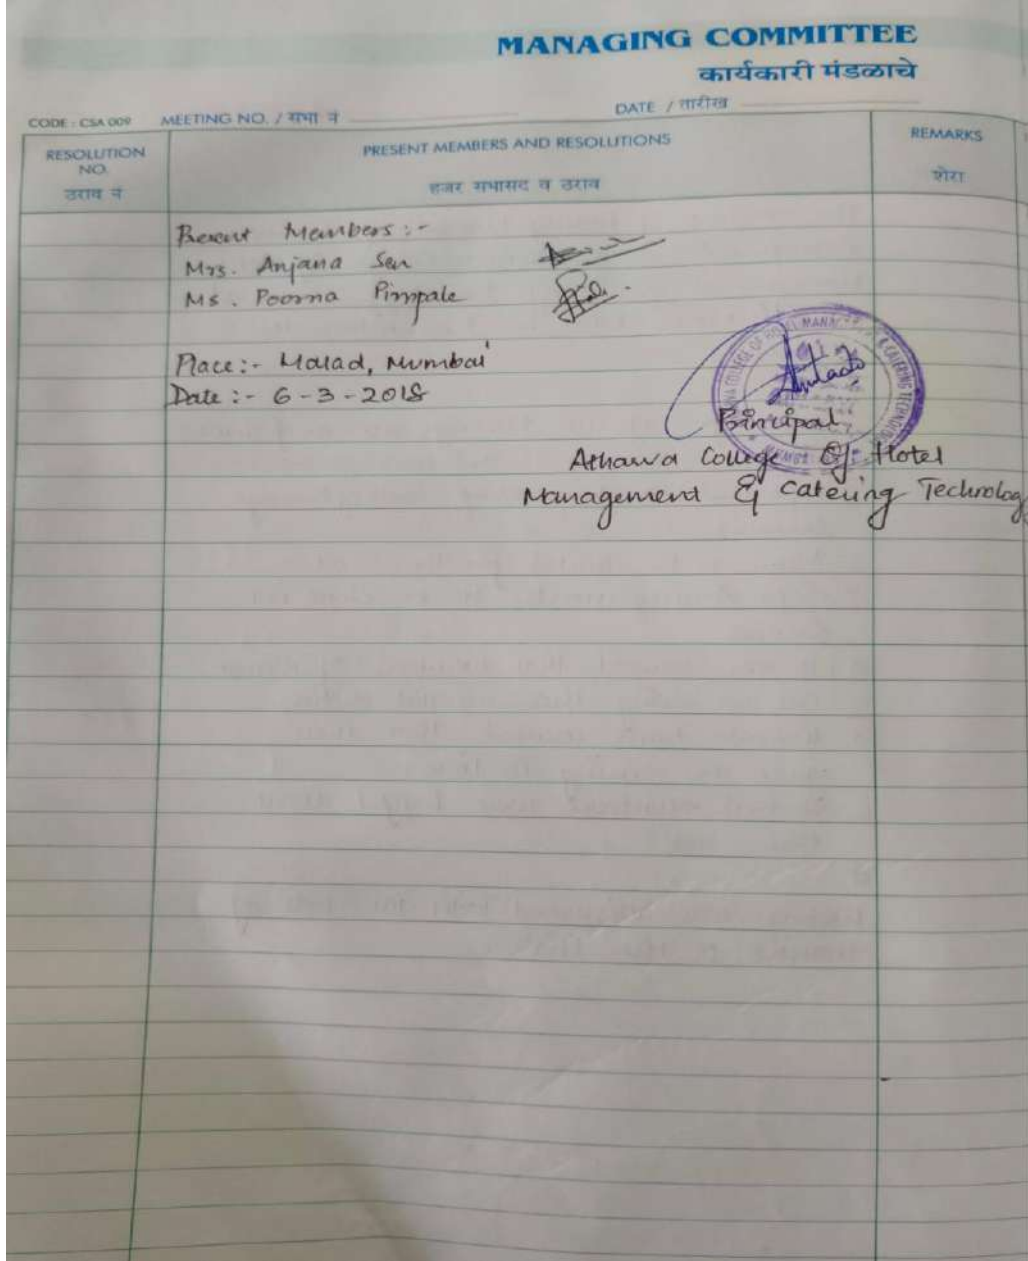 MANAGING COMMITTEE
कार्यकारी मंडळाचे
CODE : CSA 009 MEETING NO. / सभा नं DATE / तारीख
RESOLUTION NO. PRESENT MEMBERS AND RESOLUTIONS REMARKS
ठराव नं हजर सभासद व ठराव शेरा
Present Members :-
Mrs. Anjana Sen
Ms. Poorna Pimpale
Place :- Malad, Mumbai
Date :- 6-3-2018
Principal
Atharva College Of Hotel
Management & Catering Technolog